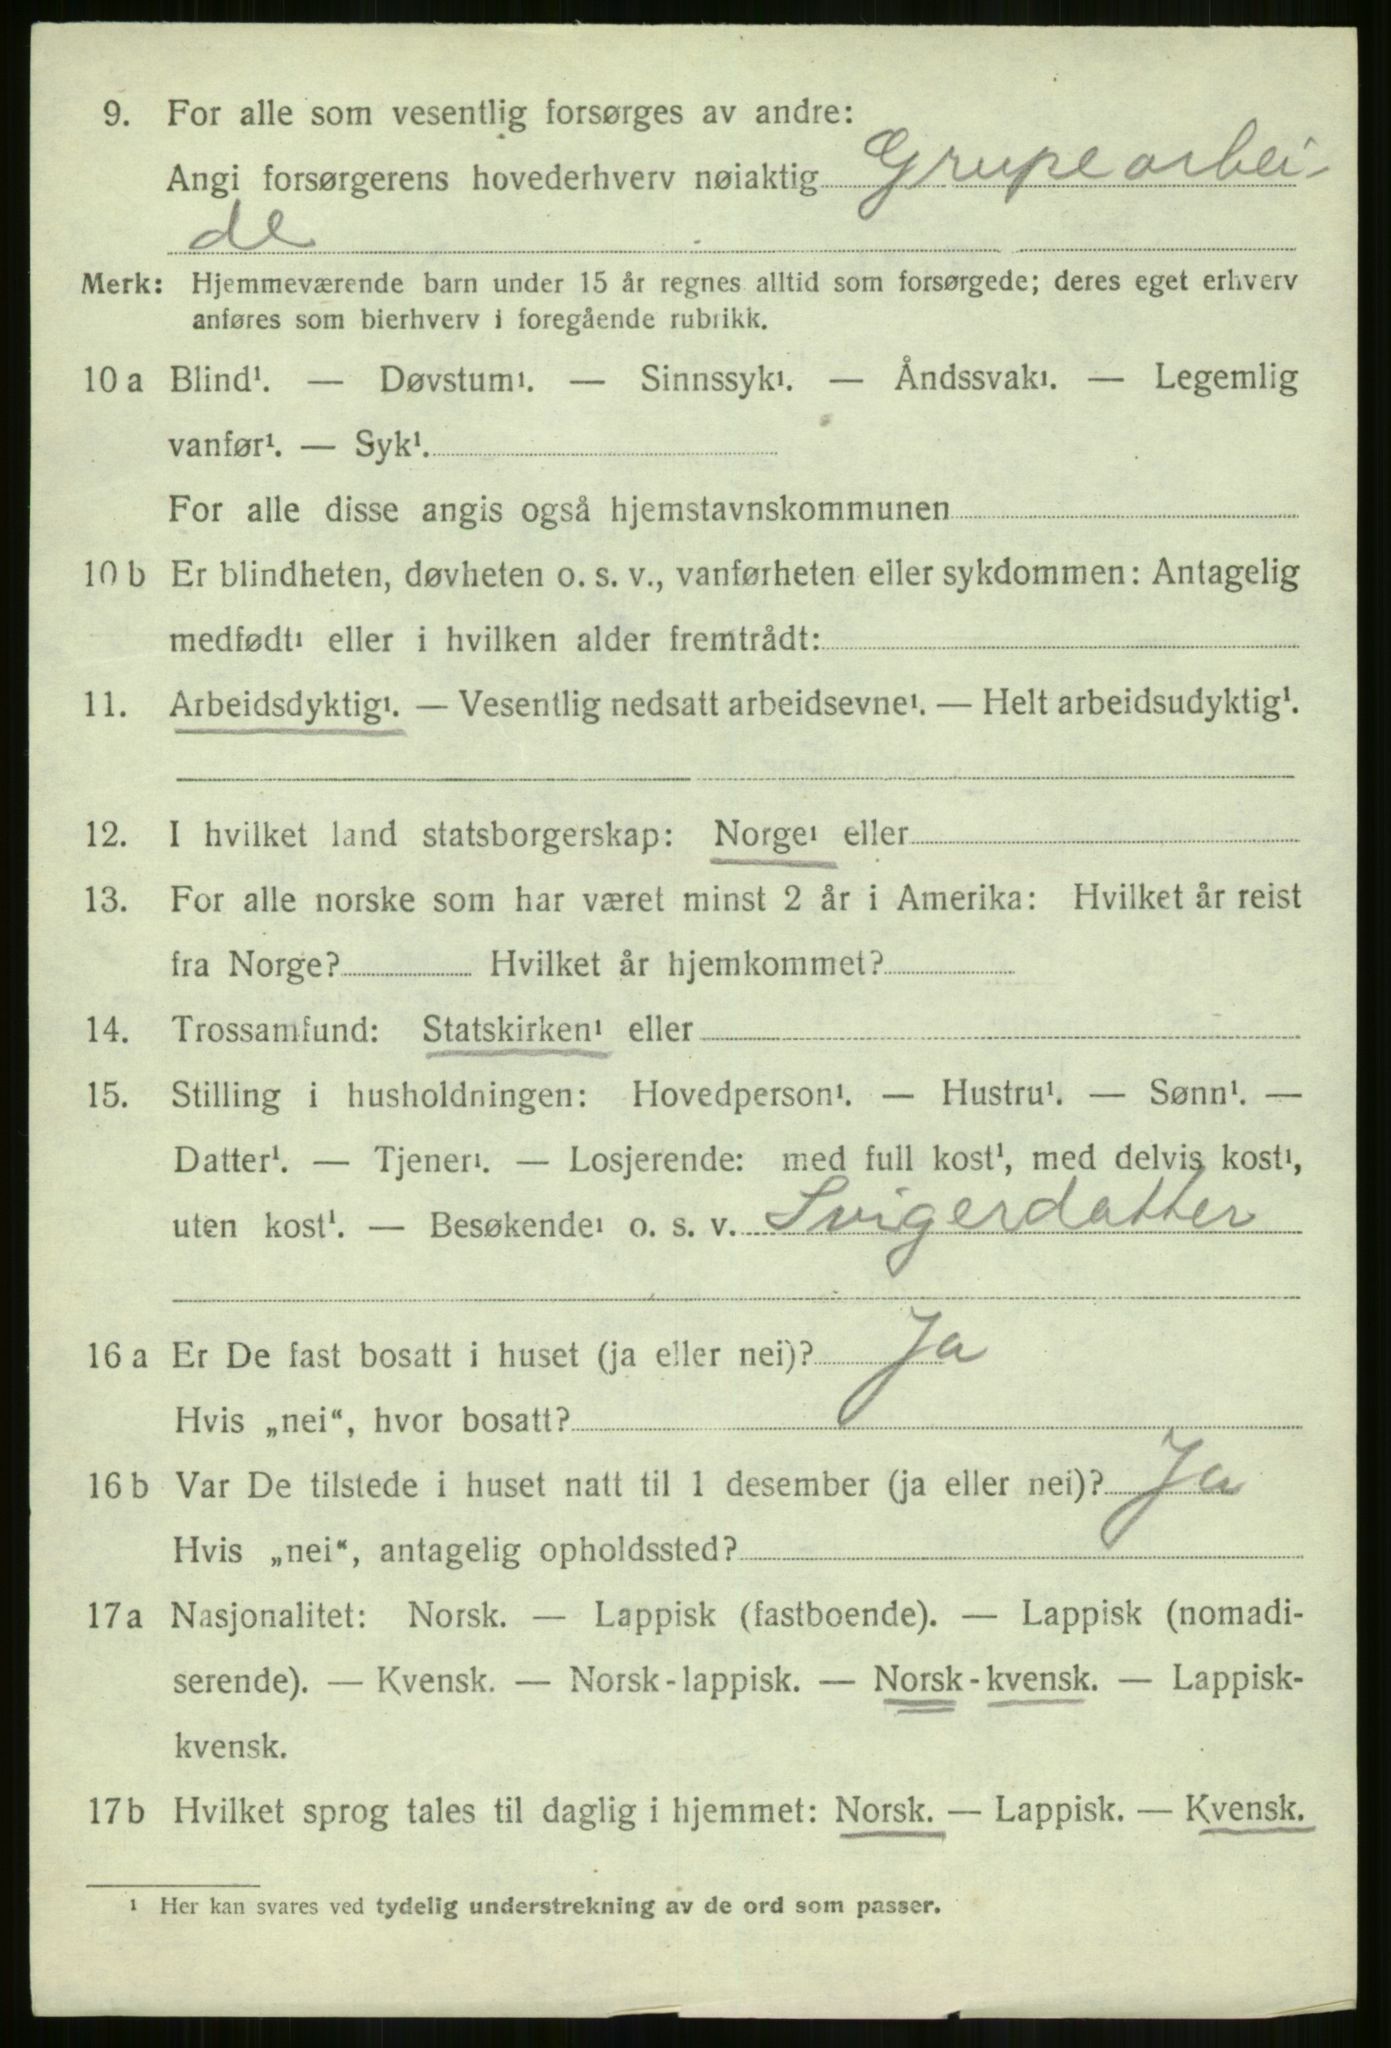 9. For alle som vesentlig forsørges av andre:
Angi forsørgerens hovederhverv nøiaktig Grupearbei-
de
Merk: Hjemmeværende barn under 15 år regnes alltid som forsørgede; deres eget erhverv
anføres som bierhverv i foregående rubrikk.
10 a Blind¹. — Døvstum¹. — Sinnssyk¹. — Åndssvak¹. — Legemlig
vanfør¹. — Syk¹.
For alle disse angis også hjemstavnskommunen
10 b Er blindheten, døvheten o. s. v., vanførheten eller sykdommen: Antagelig
medfødt¹ eller i hvilken alder fremtrådt:
11. Arbeidsdyktig¹. — Vesentlig nedsatt arbeidsevne¹. — Helt arbeidsudyktig¹.
12. I hvilket land statsborgerskap: Norge¹ eller
13. For alle norske som har været minst 2 år i Amerika: Hvilket år reist
fra Norge? Hvilket år hjemkommet?
14. Trossamfund: Statskirken¹ eller
15. Stilling i husholdningen: Hovedperson¹. — Hustru¹. — Sønn¹. —
Datter¹. — Tjener¹. — Losjerende: med full kost¹, med delvis kost¹,
uten kost¹. — Besøkende¹ o. s. v. Svigerdatter
16 a Er De fast bosatt i huset (ja eller nei)? Ja
Hvis „nei“, hvor bosatt?
16 b Var De tilstede i huset natt til 1 desember (ja eller nei)? Ja
Hvis „nei“, antagelig opholdssted?
17 a Nasjonalitet: Norsk. — Lappisk (fastboende). — Lappisk (nomadi-
serende). — Kvensk. — Norsk-lappisk. — Norsk-kvensk. — Lappisk-
kvensk.
17 b Hvilket sprog tales til daglig i hjemmet: Norsk. — Lappisk. — Kvensk.
¹ Her kan svares ved tydelig understrekning av de ord som passer.